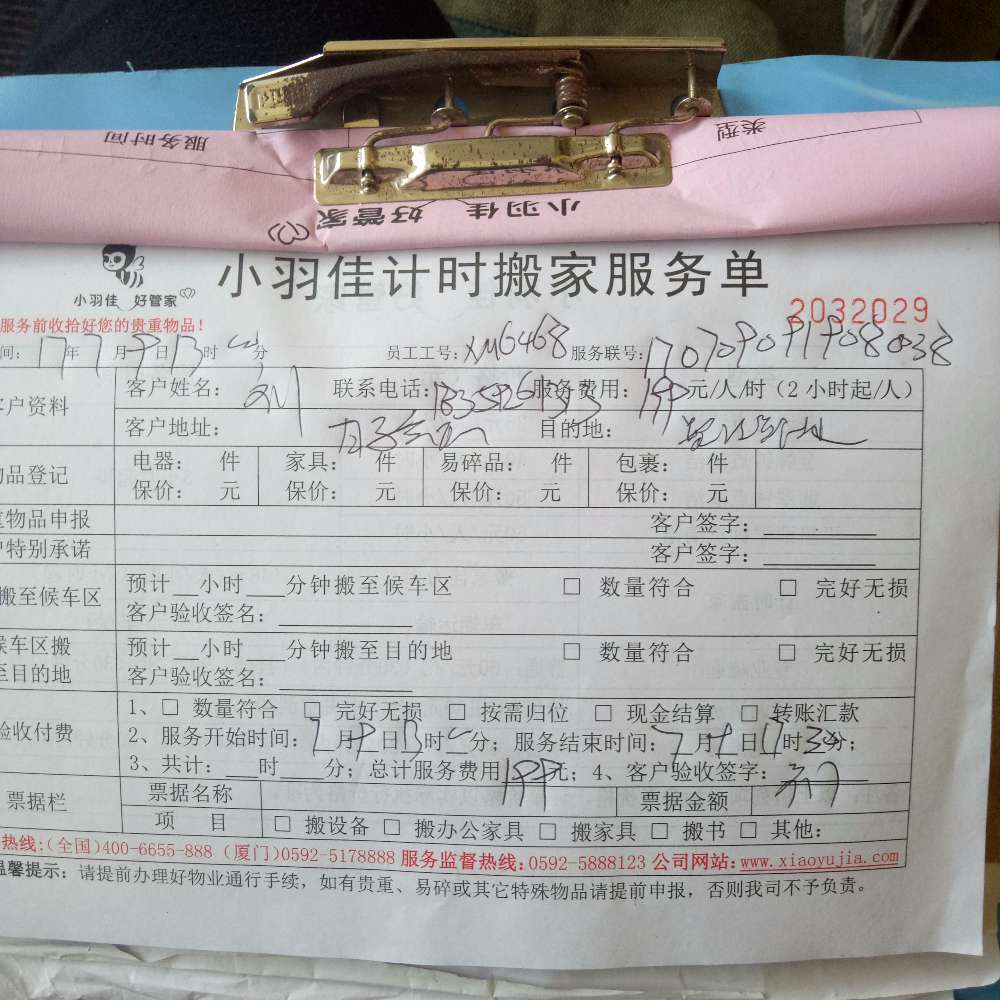 服务时间
类型
小羽佳 好管家
小羽佳 好管家
小羽佳计时搬家服务单
2032029
服务前收拾好您的贵重物品！
间：17年7月9日13时 分 员工工号：XM6468 服务联号：
客户资料 客户姓名： 联系电话： 服务费用：199元/人/时（2小时起/人）
客户地址： 目的地：
物品登记 电器： 件 家具： 件 易碎品： 件 包裹： 件
保价： 元 保价： 元 保价： 元 保价： 元
重物品申报 客户签字：
户特别承诺 客户签字：
搬至候车区 预计__小时___分钟搬至候车区 □ 数量符合 □ 完好无损
客户验收签名：
候车区搬 预计__小时___分钟搬至目的地 □ 数量符合 □ 完好无损
至目的地 客户验收签名：
验收付费 1、□ 数量符合 □ 完好无损 □ 按需归位 □ 现金结算 □ 转账汇款
2、服务开始时间：7月9日13时 分；服务结束时间：7月9日17时 分；
3、共计：___时___分；总计服务费用199元；4、客户验收签字：
票据栏 票据名称 票据金额
项 目 □ 搬设备 □ 搬办公家具 □ 搬家具 □ 搬书 □ 其他：
热线:(全国)400-6655-888 (厦门)0592-5178888 服务监督热线:0592-5888123 公司网站:www.xiaoyujia.com
温馨提示：请提前办理好物业通行手续，如有贵重、易碎或其它特殊物品请提前申报，否则我司不予负责。